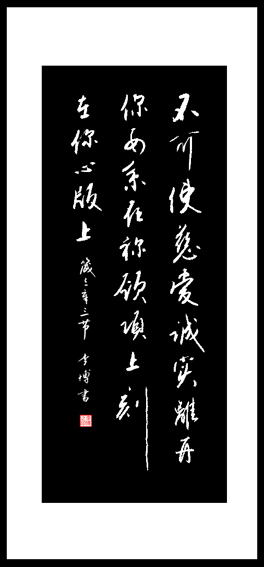 不可使慈爱诚实離开
你要系在你颈项上刻
在你心版上 箴三章三节 李博书